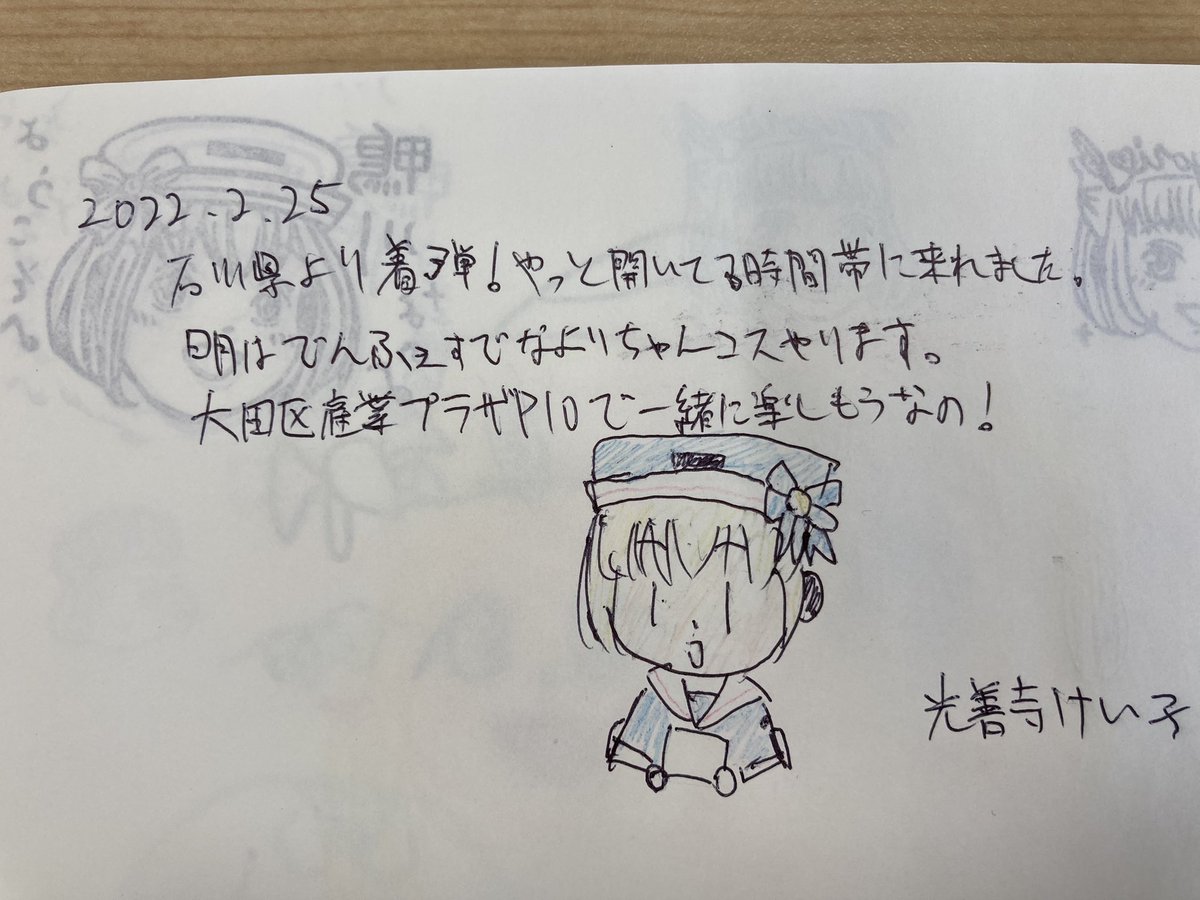 2022.2.25
石川県より着弾！やっと開いてる時間帯に来れました。
明はでんふぇすでなよりちゃんコスやります。
大田区産業プラザP10で一緒に楽しもうなの！
光善寺けい子